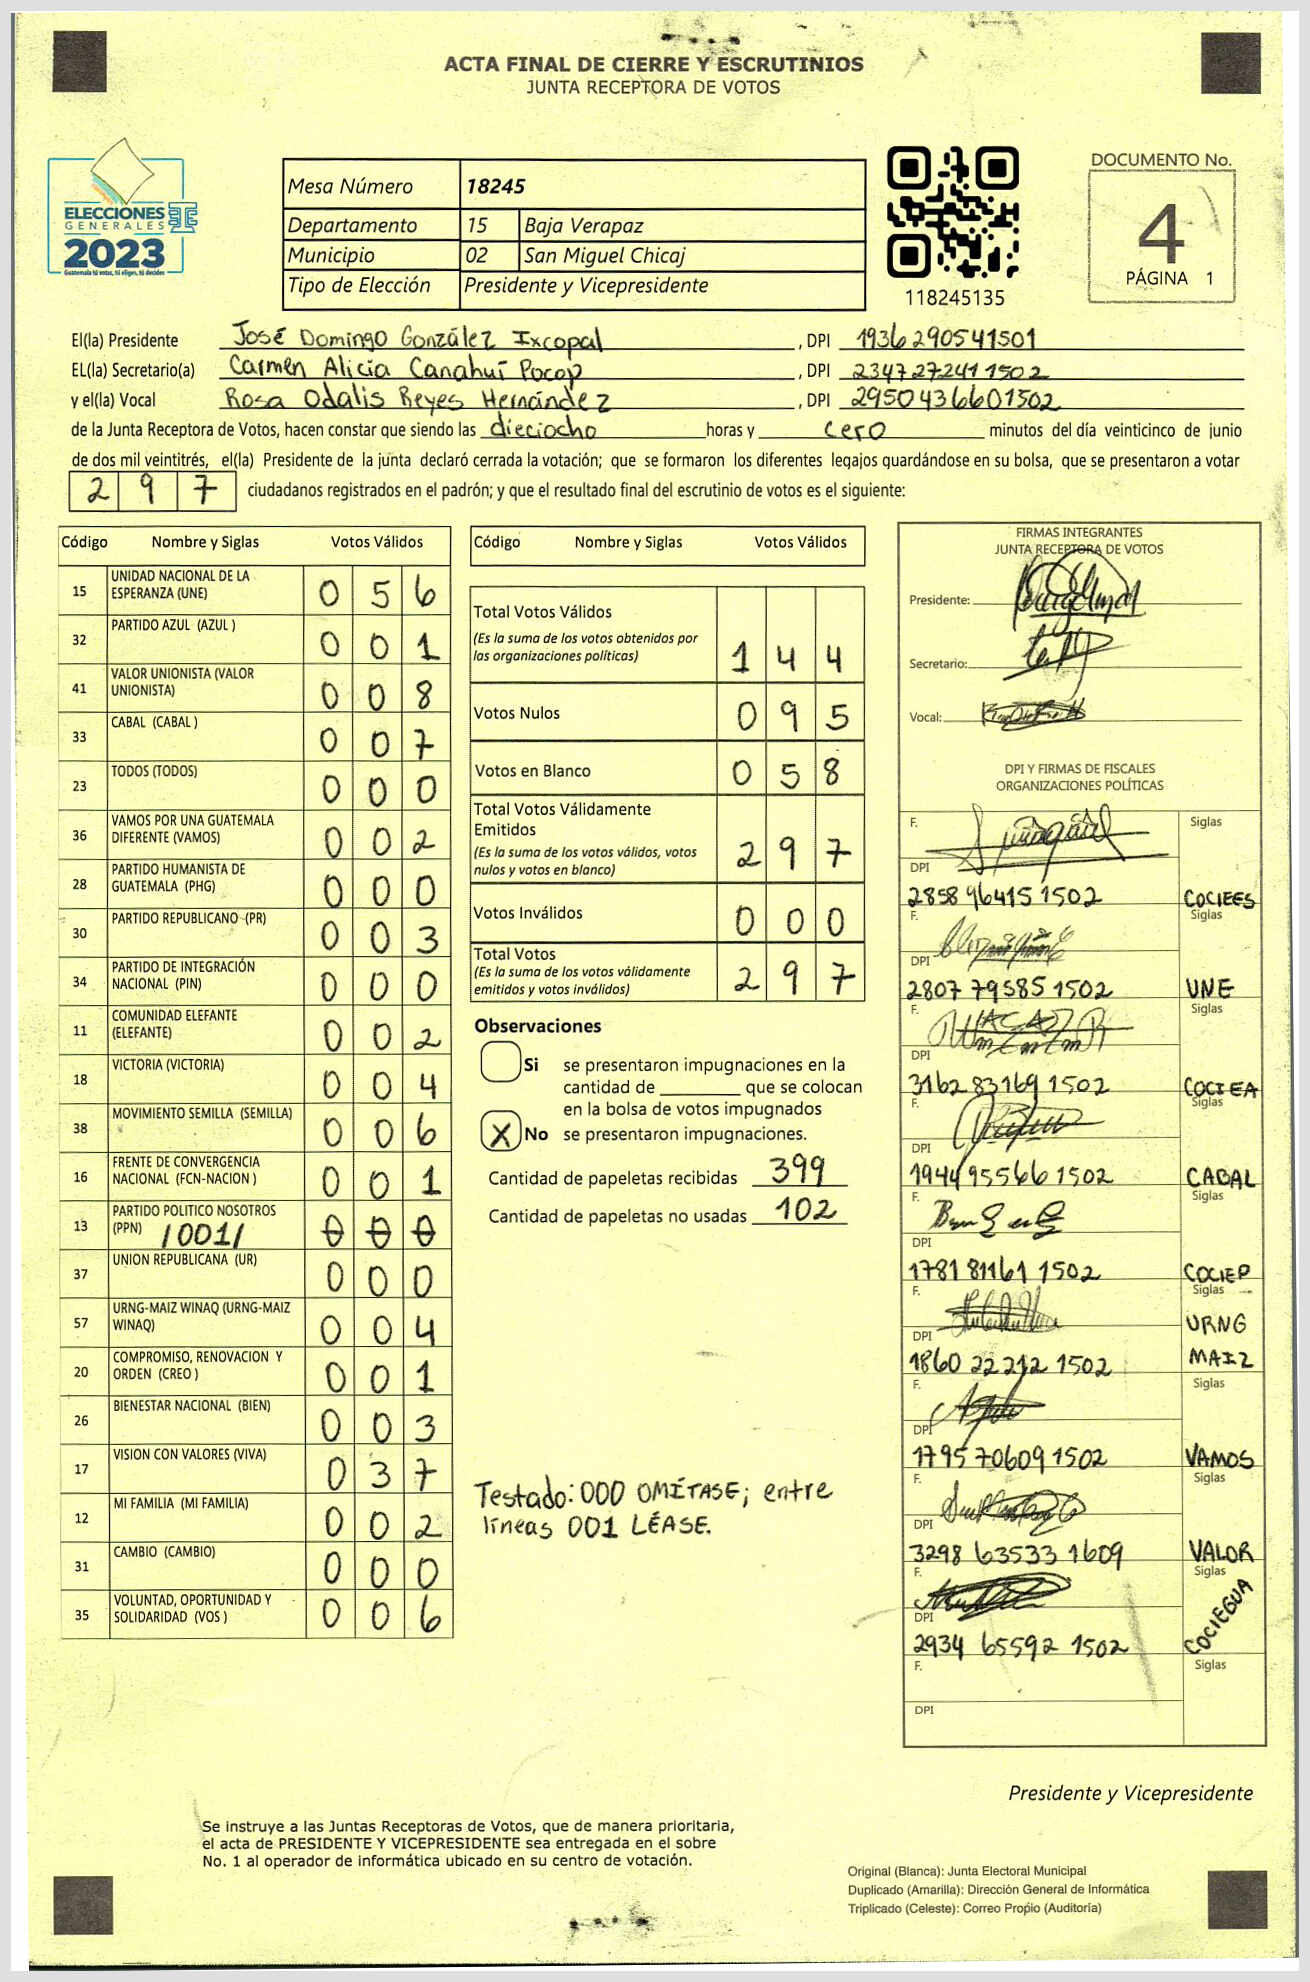 ACTA FINAL DE CIERRE Y ESCRUTINIOS
JUNTA RECEPTORA DE VOTOS
ELECCIONES
GENERALES
2023
Guatemala tú votas, tú eliges, tú decides
Mesa Número 18245
Departamento 15 Baja Verapaz
Municipio 02 San Miguel Chicaj
Tipo de Elección Presidente y Vicepresidente
118245135
DOCUMENTO No.
4
PÁGINA 1
El(la) Presidente José Domingo González Ixcopal, DPI 1936290541501
EL(la) Secretario(a) Carmen Alicia Canahuí Pocop, DPI 2347272411502
y el(la) Vocal Rosa Odalis Reyes Hernández, DPI 2950436601502
de la Junta Receptora de Votos, hacen constar que siendo las dieciocho horas y cero minutos del día veinticinco de junio
de dos mil veintitrés, el(la) Presidente de la junta declaró cerrada la votación; que se formaron los diferentes legajos guardándose en su bolsa, que se presentaron a votar
297 ciudadanos registrados en el padrón; y que el resultado final del escrutinio de votos es el siguiente:
Código Nombre y Siglas Votos Válidos
15 UNIDAD NACIONAL DE LA ESPERANZA (UNE) 056
32 PARTIDO AZUL (AZUL ) 001
41 VALOR UNIONISTA (VALOR UNIONISTA) 008
33 CABAL (CABAL ) 007
23 TODOS (TODOS) 000
36 VAMOS POR UNA GUATEMALA DIFERENTE (VAMOS) 002
28 PARTIDO HUMANISTA DE GUATEMALA (PHG) 000
30 PARTIDO REPUBLICANO (PR) 003
34 PARTIDO DE INTEGRACIÓN NACIONAL (PIN) 000
11 COMUNIDAD ELEFANTE (ELEFANTE) 002
18 VICTORIA (VICTORIA) 004
38 MOVIMIENTO SEMILLA (SEMILLA) 006
16 FRENTE DE CONVERGENCIA NACIONAL (FCN-NACION ) 001
13 PARTIDO POLITICO NOSOTROS (PPN) /001/ 000
37 UNION REPUBLICANA (UR) 000
57 URNG-MAIZ WINAQ (URNG-MAIZ WINAQ) 004
20 COMPROMISO, RENOVACION Y ORDEN (CREO ) 001
26 BIENESTAR NACIONAL (BIEN) 003
17 VISION CON VALORES (VIVA) 037
12 MI FAMILIA (MI FAMILIA) 002
31 CAMBIO (CAMBIO) 000
35 VOLUNTAD, OPORTUNIDAD Y SOLIDARIDAD (VOS ) 006
Código Nombre y Siglas Votos Válidos
Total Votos Válidos 144
(Es la suma de los votos obtenidos por
las organizaciones políticas)
Votos Nulos 095
Votos en Blanco 058
Total Votos Válidamente
Emitidos 297
(Es la suma de los votos válidos, votos
nulos y votos en blanco)
Votos Inválidos 000
Total Votos 297
(Es la suma de los votos válidamente
emitidos y votos inválidos)
Observaciones
Si se presentaron impugnaciones en la
cantidad de ________ que se colocan
en la bolsa de votos impugnados
X No se presentaron impugnaciones.
Cantidad de papeletas recibidas 399
Cantidad de papeletas no usadas 102
Testado: 000 OMÍTASE; entre
líneas 001 LÉASE.
FIRMAS INTEGRANTES
JUNTA RECEPTORA DE VOTOS
Presidente:
Secretario:
Vocal:
DPI Y FIRMAS DE FISCALES
ORGANIZACIONES POLÍTICAS
F. Siglas
DPI
2858 96415 1502 COCIEES
F. Siglas
DPI
2807 79585 1502 UNE
F. Siglas
DPI
3162 83169 1502 COCIEA
F. Siglas
DPI
1944 95566 1502 CABAL
F. Siglas
DPI
1781 81161 1502 COCIEP
F. Siglas
DPI URNG
1860 22212 1502 MAIZ
F. Siglas
DPI
1795 70609 1502 VAMOS
F. Siglas
DPI
3298 63533 1609 VALOR
F. Siglas
DPI
2934 65592 1502 COCIEGUA
F. Siglas
DPI
Presidente y Vicepresidente
Se instruye a las Juntas Receptoras de Votos, que de manera prioritaria,
el acta de PRESIDENTE Y VICEPRESIDENTE sea entregada en el sobre
No. 1 al operador de informática ubicado en su centro de votación.
Original (Blanca): Junta Electoral Municipal
Duplicado (Amarilla): Dirección General de Informática
Triplicado (Celeste): Correo Propio (Auditoría)